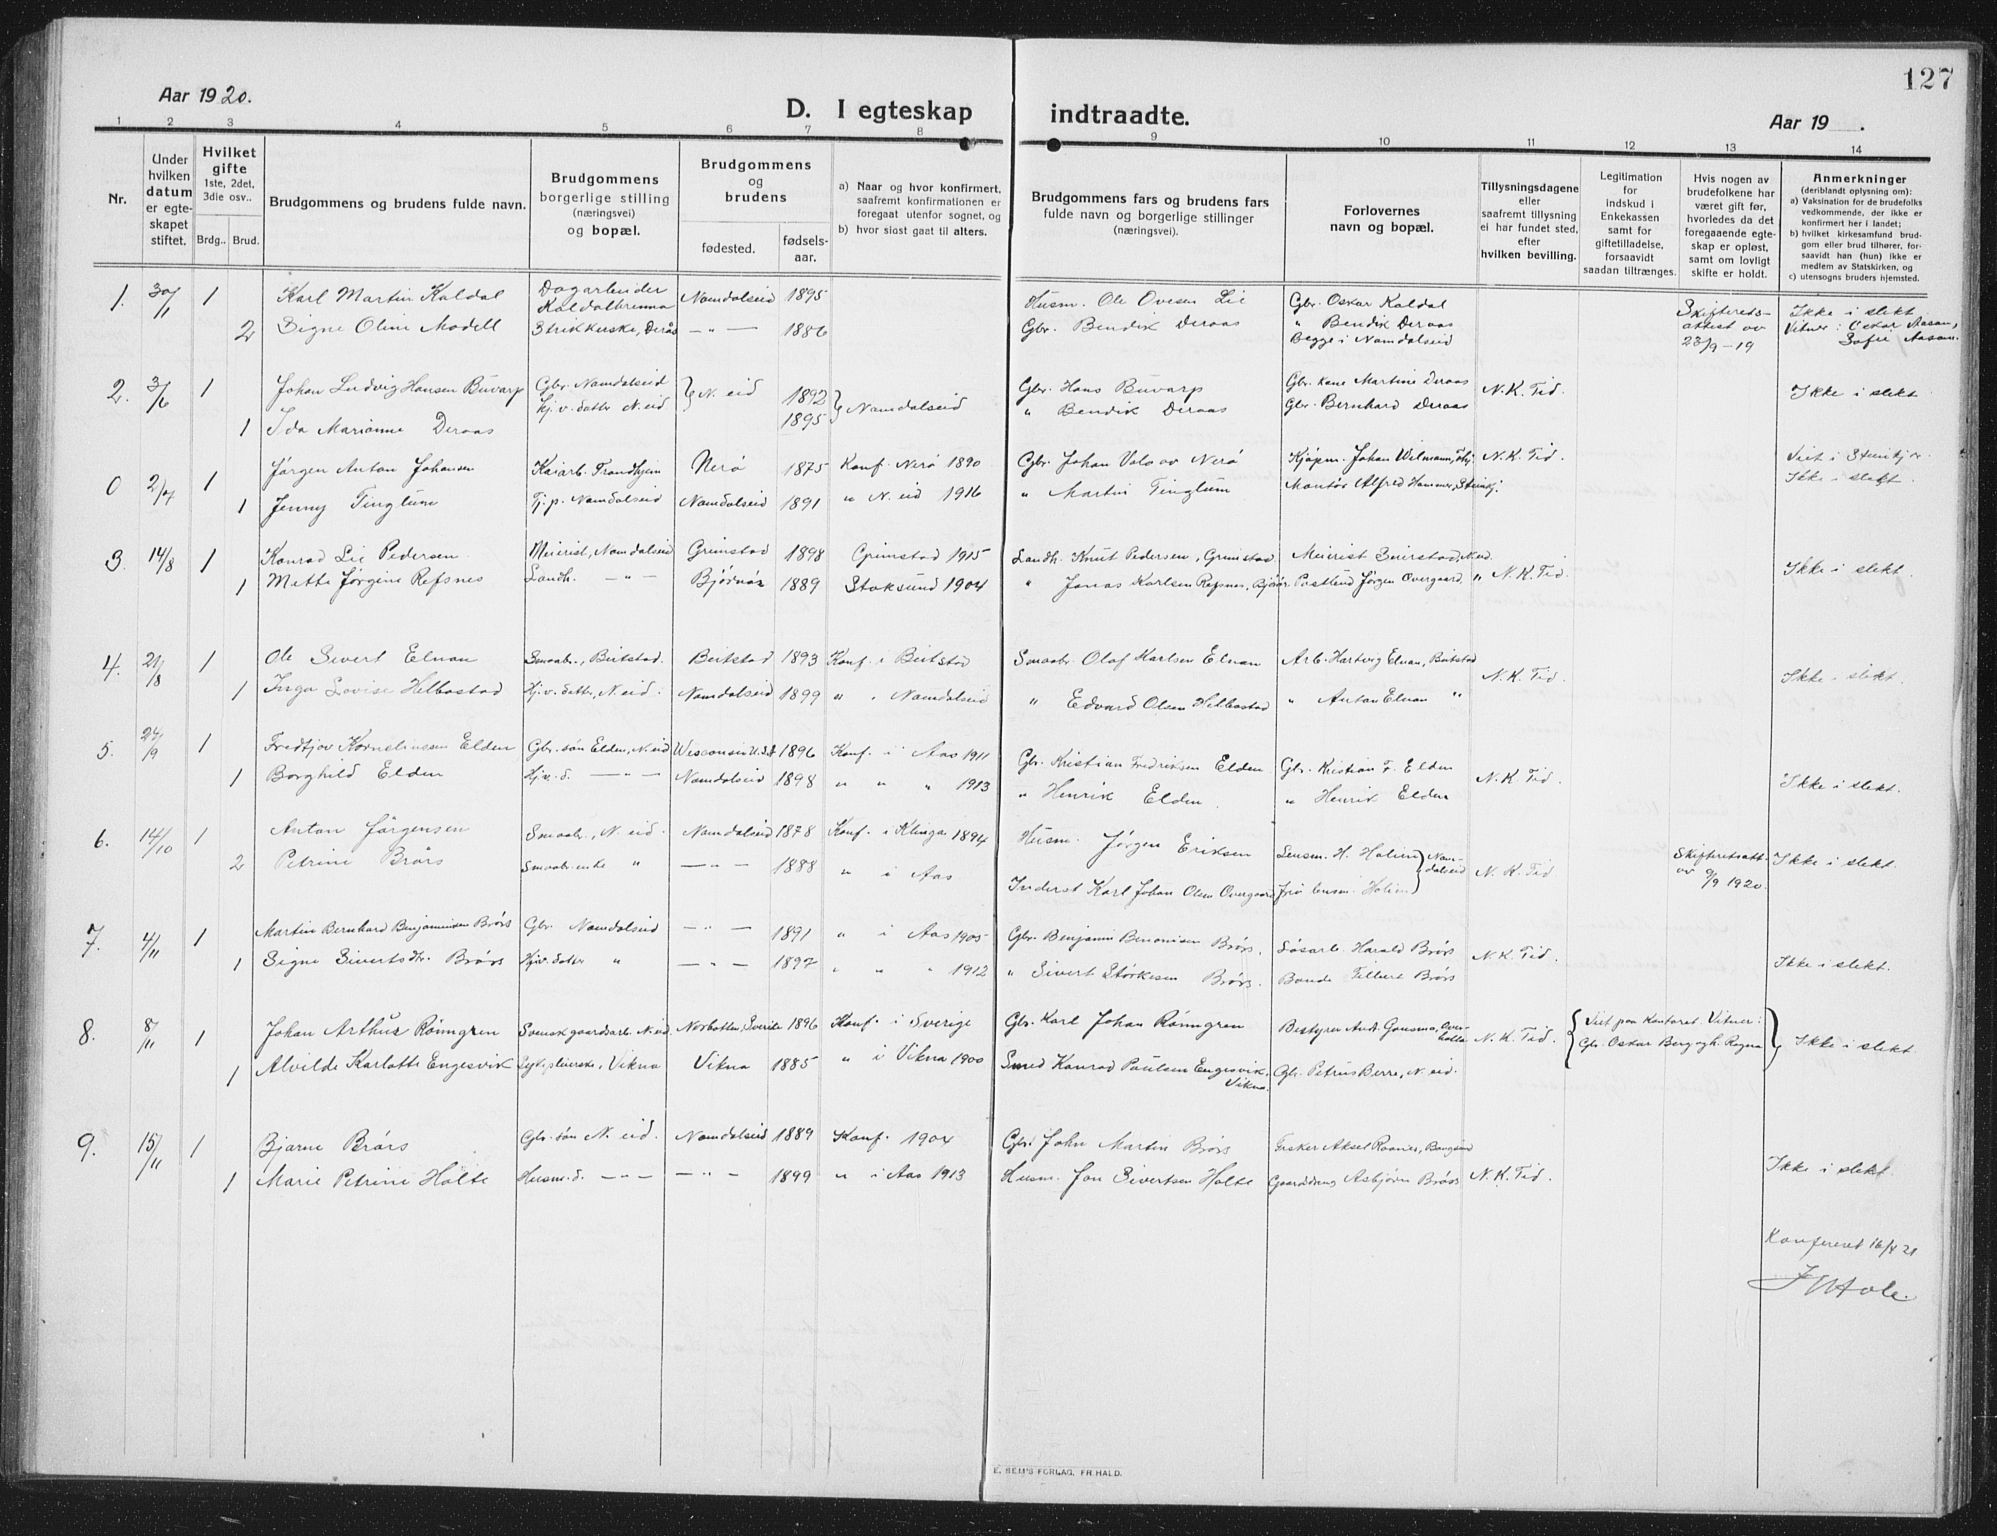 127
Aar 1920.
D. I egteskap indtraadte.
Aar 19 .
1 2 3 4 5 6 7 8 9 10 11 12 13 14
Nr.
Under hvilken datum er egteskapet stiftet.
Hvilket gifte 1ste, 2det, 3die osv..
Brdg.. Brud.
Brudgommens og brudens fulde navn.
Brudgommens borgerlige stilling (næringsvei) og bopæl.
Brudgommens og brudens
fødested. fødselsaar.
a) Naar og hvor konfirmert, saafremt konfirmationen er foregaat utenfor sognet, og
b) hvor sisst gaat til alters.
Brudgommens fars og brudens fars fulde navn og borgerlige stillinger (næringsvei).
Forlovernes navn og bopæl.
Tillysningsdagene eller saafremt tillysning ei har fundet sted, efter hvilken bevilling.
Legitimation for indskud i Enkekassen samt for giftetilladelse, forsaavidt saadan tiltrænges.
Hvis nogen av brudefolkene har været gift før, hvorledes da det foregaaende egteskap er opløst, samt om lovligt skifte er holdt.
Anmerkninger (deriblandt oplysning om):
a) Vaksination for de brudefolks vedkommende, der ikke er konfirmert her i landet;
b) hvilket kirkesamfund brudgom eller brud tilhører, forsaavidt han (hun) ikke er medlem av Statskirken, og
c) utensogns bruders hjemsted.
1. 30/1 1 Karl Martin Kaldal Dagarbeider Kaldalbrenna Namdalseid 1895 Husm. Ole Ovesen Lie Gbr. Oskar Kaldal Skifterets- Ikke i slekt
2 Signe Oline Modell Strikkerske, Derås — " — 1886 Gbr. Bendik Deraas " Bendik Deraas attest av Vitner: Oskar Aasan,
Begge i Namdalseid 23/9-19 Sofie Aasan.
2. 3/6 1 Johan Ludvig Hansen Buvarp Gbr. Namdalseid N. eid 1892 Namdalseid Gbr. Hans Buvarp Gbr. kone Martine Deraas N. K. Tid. Ikke i slekt
1 Ida Marianne Deraas Hj. v. datter N. eid 1895 " Bendik Deraas Gbr. Bernhard Deraas
0 2/7 1 Jørgen Anton Johansen Kaiarb. Trondhjem Nerø 1875 Konf. Nerø 1890 Gbr. Johan Valo av Nerø Kjøpm. Johan Wilmann, N. K. Tid. Viet i Steinkjær.
1 Jenny Tinglum Tj. p. Namdalseid Namdalseid 1891 " N. eid 1916 " Martin Tinglum Montør Alfred Hammer, Steinkj. Ikke i slekt.
3. 14/8 1 Konrad Lie Pedersen Meierist, Namdalseid Grimstad 1898 Grimstad 1915 Landh. Knut Pedersen, Grimstad Meierist Seirstad, N. eid.
1 Mette Jørgine Refsnes Landh. — " — Bjørnør 1889 Stoksund 1904 " Jonas Karlsen Refsnes, Bjørnør Postbud Jørgen Overgaard, " N. K. Tid. Ikke i slekt.
4. 21/8 1 Ole Sivert Elnan Smaabr., Beitstad. Beitstad 1893 Konf. i Beitstad Smaabr. Olaf Karlsen Elnan Arb. Hartvig Elnan, Beitstad N. K. Tid. Ikke i slekt.
1 Inga Lovise Helbostad Hj. v. datter, N. eid. Namdalseid 1899 " " Namdalseid " Edvard Olsen Helbostad " Anton Elnan "
5. 24/9 1 Fredtjov Korneliussen Elden Gbr. søn Elden, N. eid Wisconsin U.S.A 1896 Konf. i Aas 1911 Gbr. Kristian Fredriksen Elden Gbr. Kristian F. Elden N. K. Tid. Ikke i slekt.
1 Borghild Elden Hj. v. d. — " — Namdalseid 1898 " " " 1913 " Henrik Elden. " Henrik Elden
6. 14/10 1 Anton Jørgensen Smaabr., N. eid. Namdalseid 1878 Konf. i Klinga 1894 Husm. Jørgen Eriksen Lensm. H. Holien Namdalseid Skifteretsatt. Ikke i slekt.
2 Petrine Brørs Smaabr. enke " — " — 1888 " i Aas Inderst Karl Johan Olsen Overgaard Fru lensm. Holien N. K. Tid av 9/9 1920.
7. 4/11 1 Martin Bernhard Benjaminsen Brørs Gbr. Namdalseid — " — 1891 " i Aas 1905 Gbr. Benjamin Benonisen Brørs. Harald Brørs N. K. Tid.
1 Signe Sivertsdtr. Brørs Hj. v. datter " — " — 1897 " " " 1912 " Sivert Størkesen Brørs. Bonde Brørs Ikke i slekt.
8. 8/11 1 Johan Arthur Rönngren Svensk gaardsarb. N. eid. Norbotten, Sverige 1896 Konf. i Sverige Gbr. Karl Johan Rönngren Bestyrer And. Overhalla N. K. Tid. Viet paa Kontoret. Vitner: Gbr. Oskar Berg og h. Ragna
1 Alvilde Karlotte Engesvik Sykepleierske, Vikna Vikna 1885 " i Vikna 1900 Smed Konrad Paulsen Engesvik, Vikna. Gbr. Petrus Berre, N. eid. Ikke i slekt
9. 15/11 1 Bjarne Brørs Gbr. søn N. eid. Namdalseid 1889 Konf. 1904 Gbr. John Martin Brørs Fisker Aksel Roaness, Bangsund
1 Marie Petrine Holte Husm. d. — " — — " — 1899 " i Aas 1913 Husm. Jon Sivertsen Holte Gaarddreng Asbjørn Brørs N. K. Tid. Ikke i slekt
Konfereret 16/4 21
E. SEM'S FORLAG, FR.HALD.